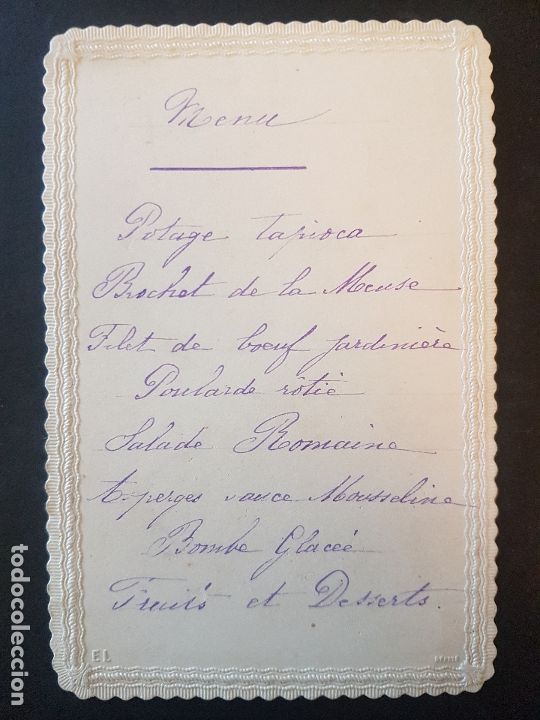 Menu
Potage tapioca
Brochet de la Meuse
Filet de boeuf jardinière
Poularde rôtie
Salade Romaine
Asperges sauce Mousseline
Bombe Glacée
Fruits et Desserts.
EL
todocoleccion